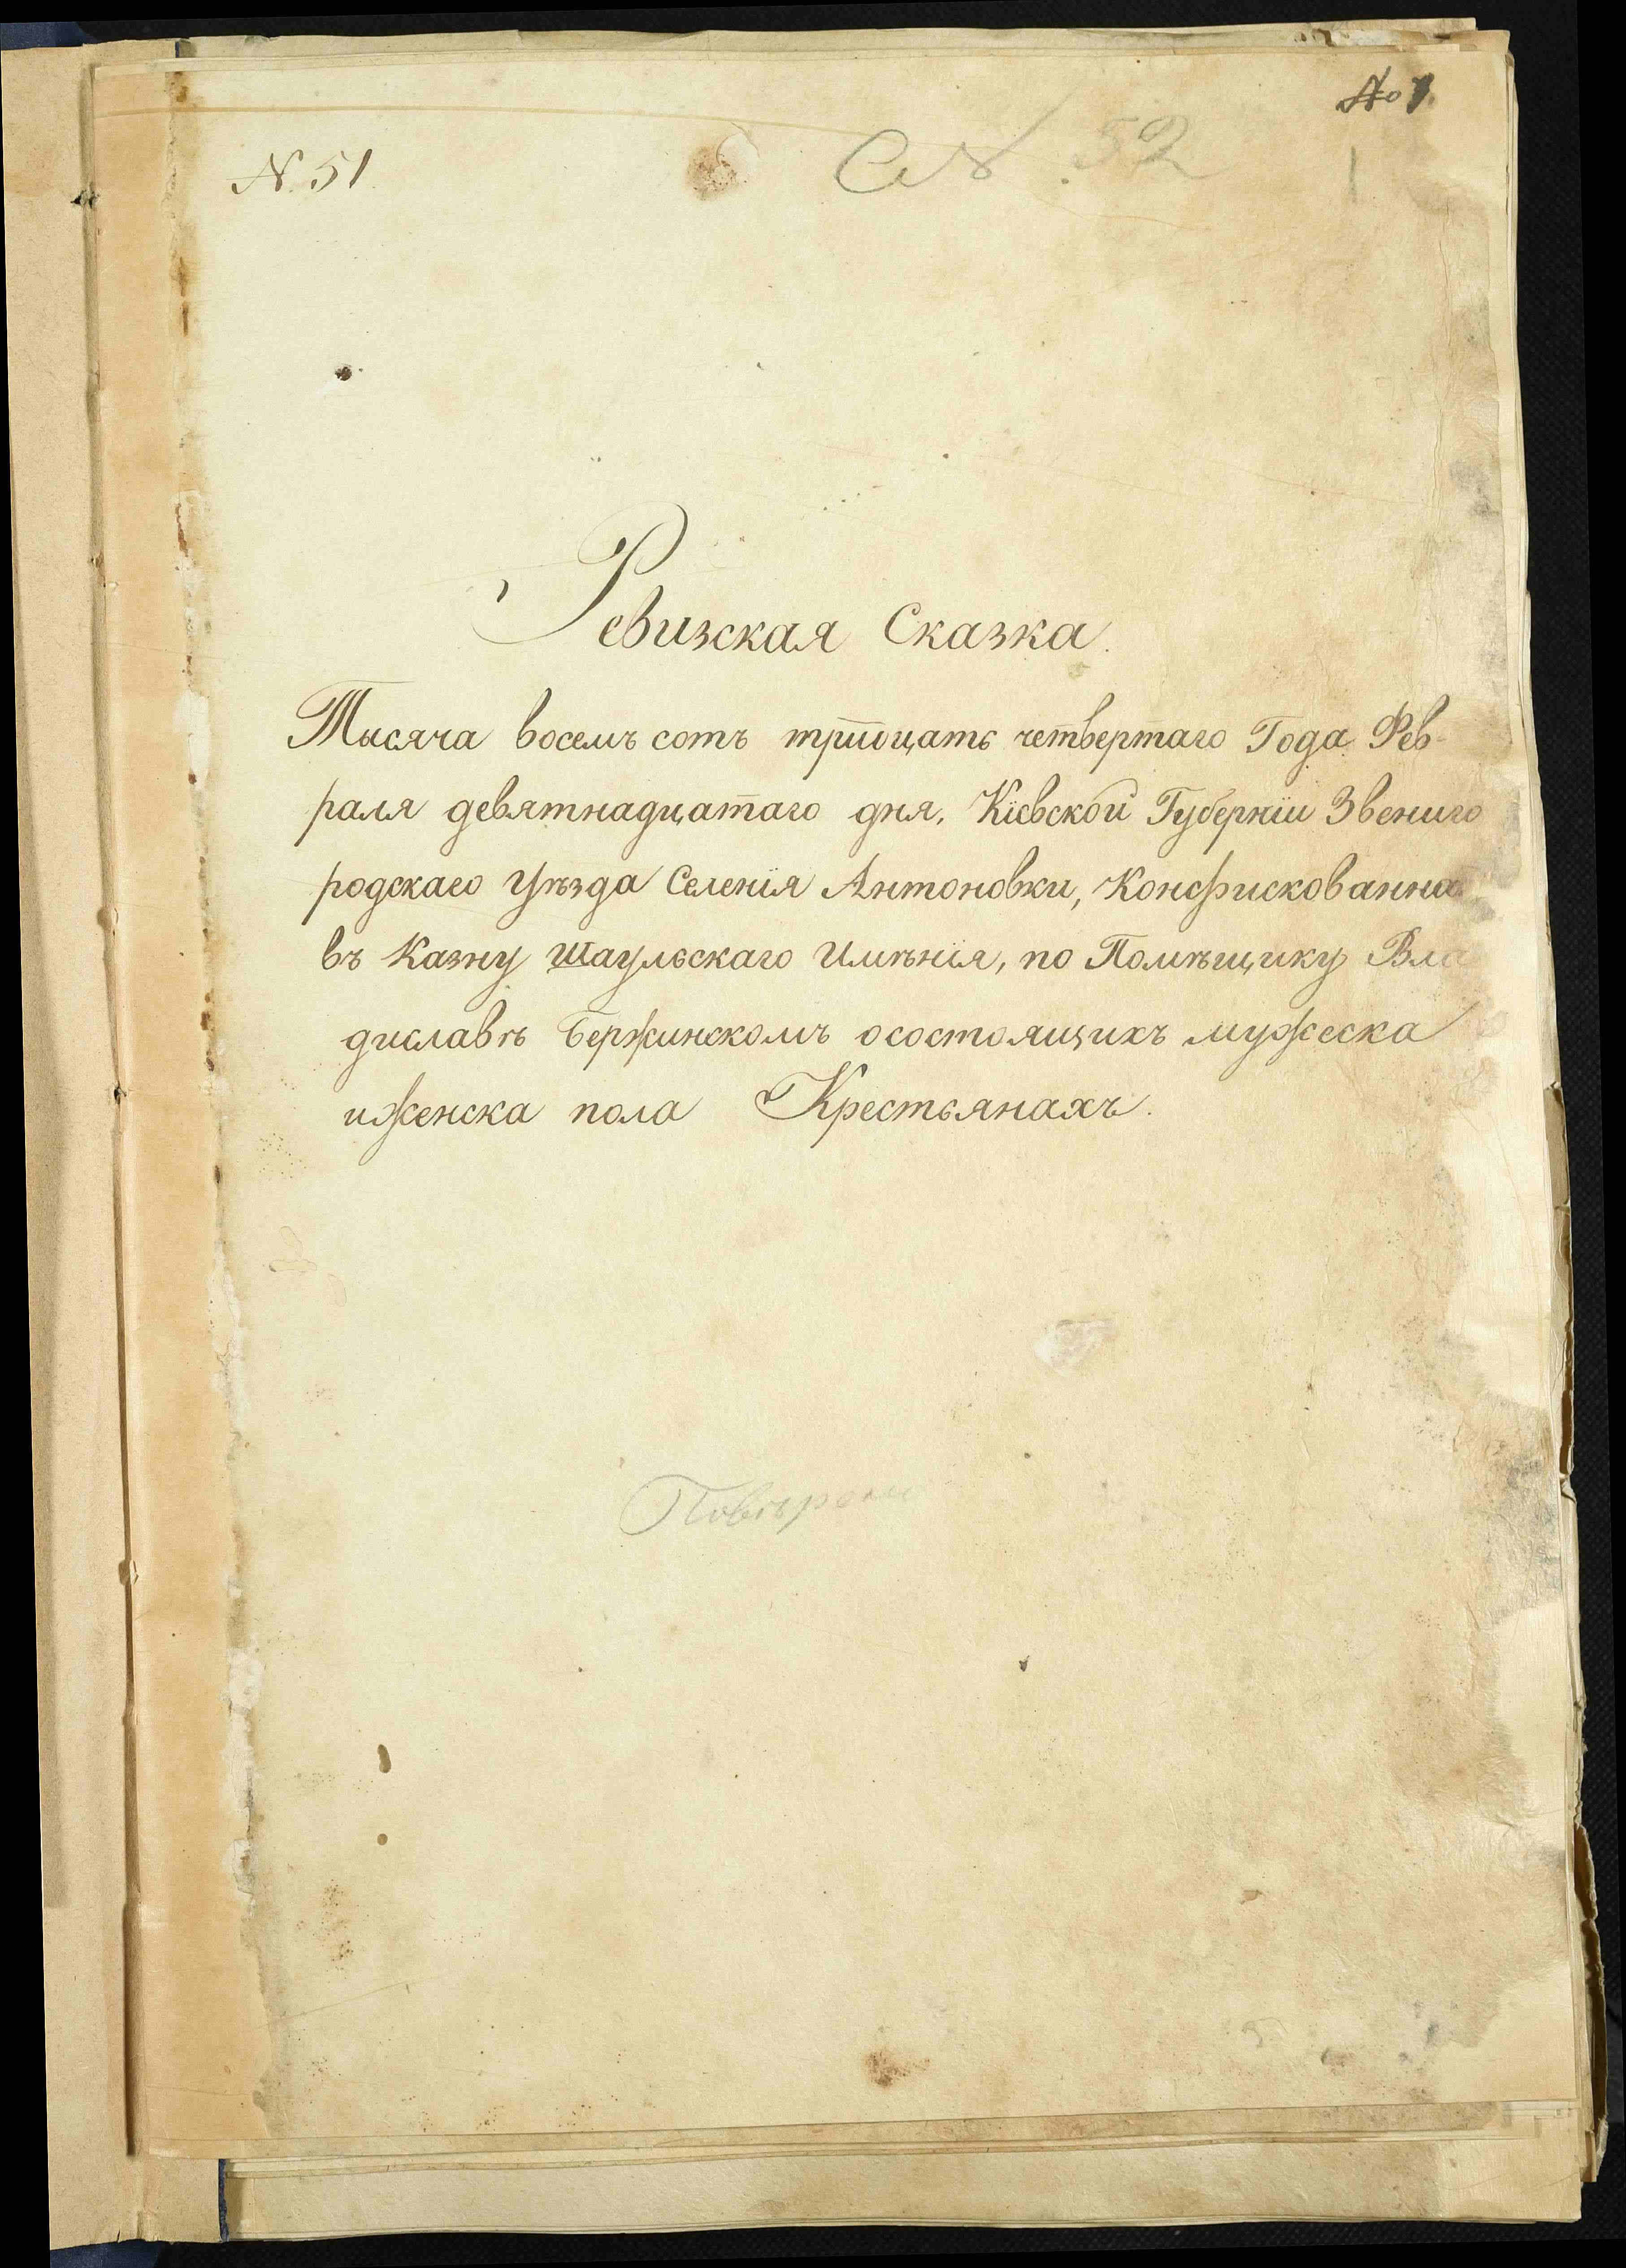 № 1
N. 51.
52
1
Ревизская Сказка.
Тысяча восемь сотъ тритцать четвертаго Года Фев-
раля девятнадцатаго дня, Кіевской Губерніи Звениго
родскаго Уѣзда Селенія Антоновки, Конфискованна
въ Казну Шаульскаго Имѣнія, по Помѣщику Вла
диславѣ Бержинскомъ осостоящихъ мужеска
иженска пола Крестьянахъ.